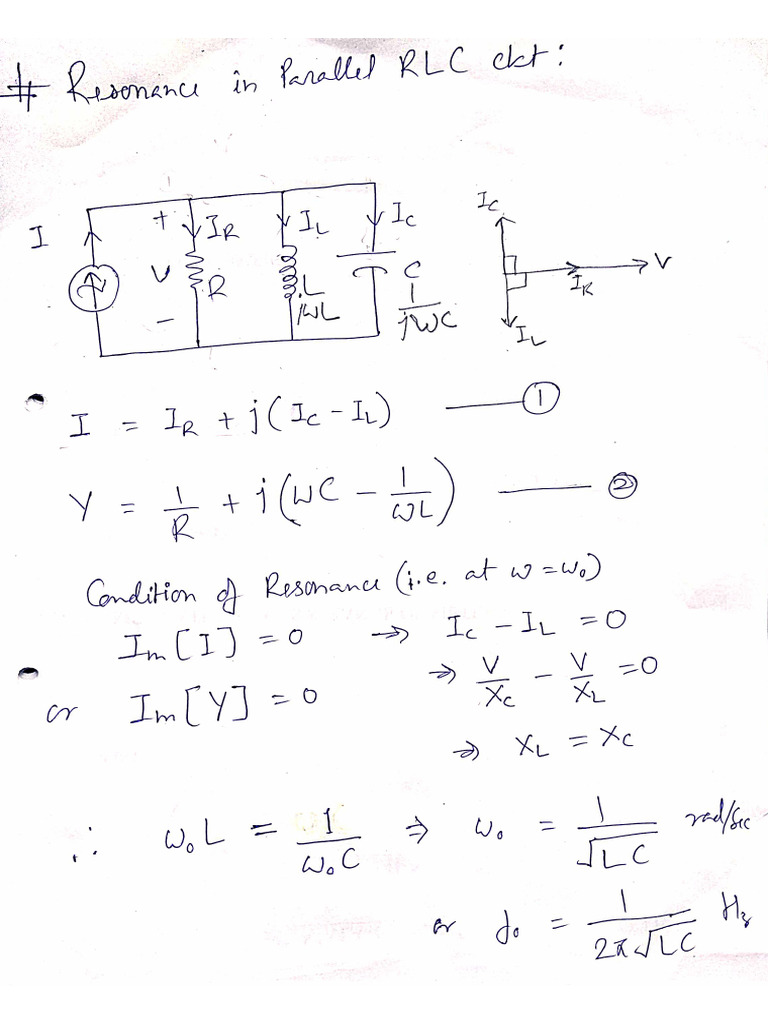 # Resonance in Parallel RLC ckt:
I + V - I_R R I_L L jωL I_C C 1/jωC
I_C V I_R I_L
I = I_R + j(I_C - I_L) —— ①
Y = 1/R + j(ωC - 1/ωL) —— ②
Condition of Resonance (i.e. at ω = ω₀)
Im[I] = 0 ⇒ I_C - I_L = 0
⇒ V/X_C - V/X_L = 0
or Im[Y] = 0
⇒ X_L = X_C
∴ ω₀L = 1/ω₀C ⇒ ω₀ = 1/√LC rad/sec
or f₀ = 1/2π√LC Hz